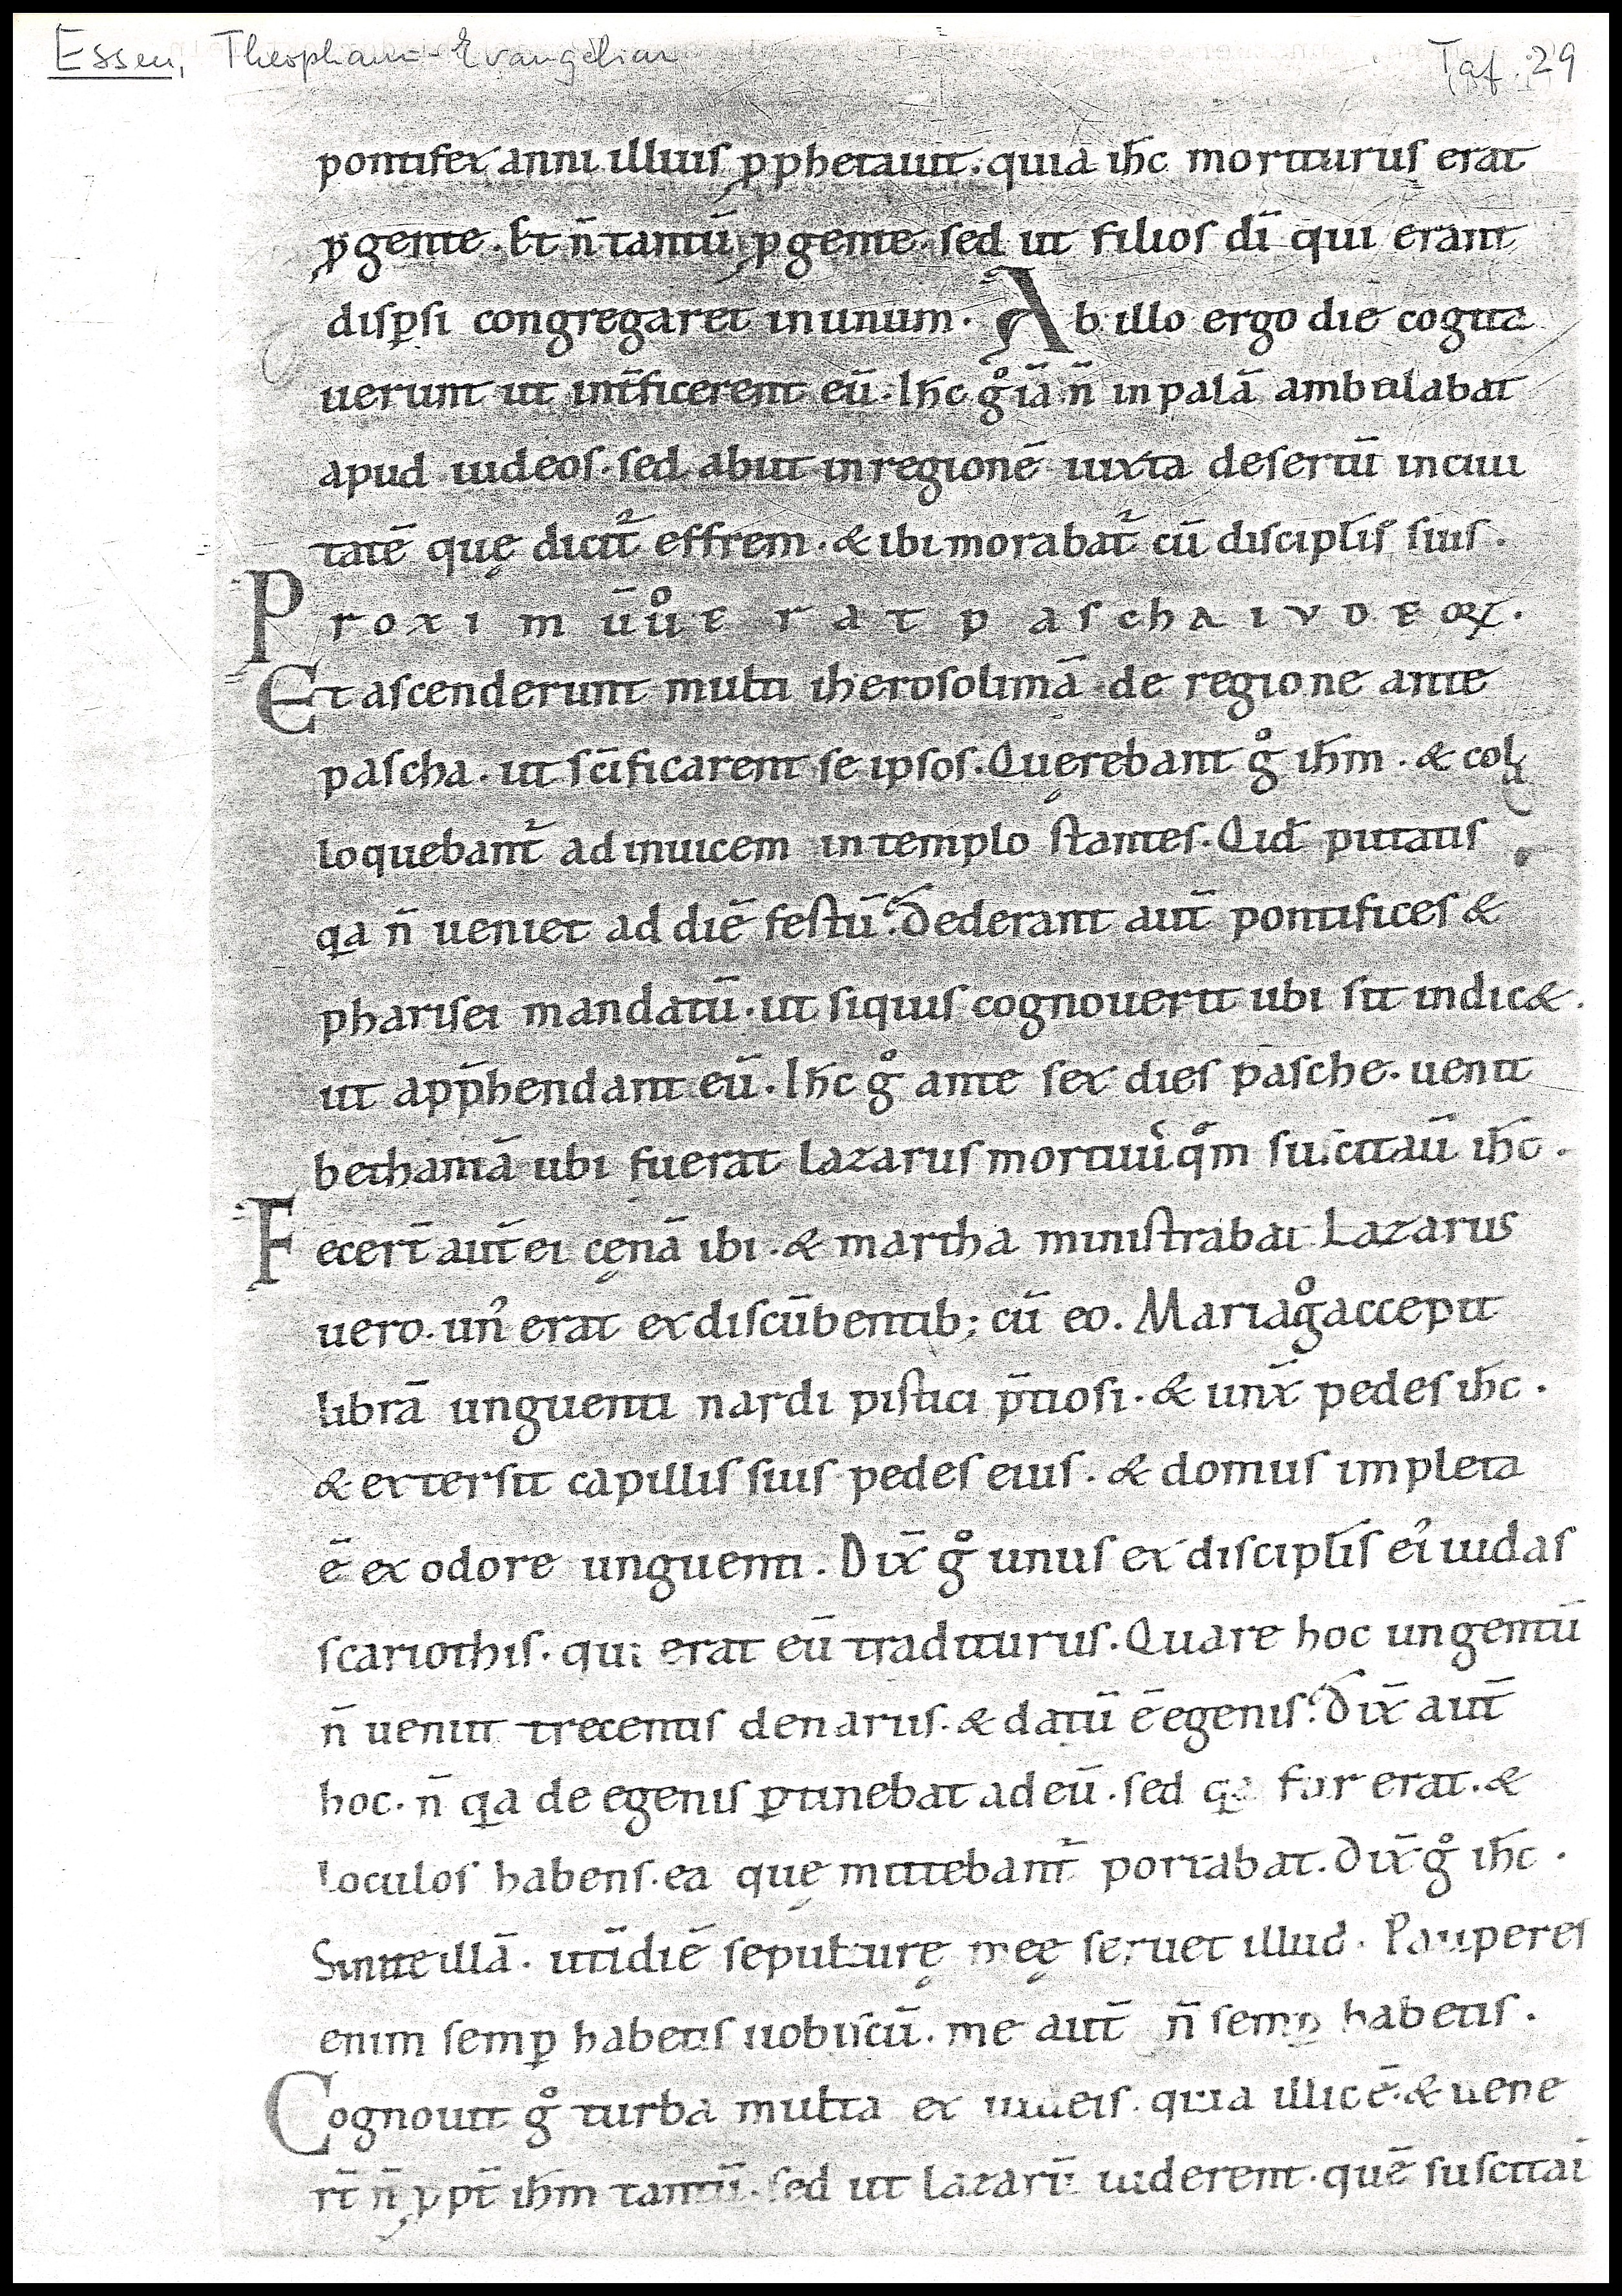 Essen, Theophanu-Evangeliar Taf. 29
pontifex anni illius ꝓphetauit. quia ih̄c moriturus erat
ꝓ gente. Et n̄ tantū ꝓ gente. sed ut filios dī qui erant
disꝑsi congregaret in unum. Ab illo ergo die cogita
uerunt ut int̄ficerent eū. Ih̄c gͦ iā n̄ in palā ambulabat
apud iudeos. sed abiit in regionē iuxta desertū in ciui
tatē quę dicit᷑ effrem. & ibi morabat᷑ cū discipl̄is suis.
Proximū uͦ erat pascha iudeoꝝ.
Et ascenderunt multi iherosolimā de regione ante
pascha. ut sc̄ificarent se ipsos. Quęrebant gͦ ih̄m. & col
loquebant᷑ ad inuicem in templo stantes. Qid putatis
qa n̄ ueniet ad diē festū? Dederant aut̄ pontifices &
pharisei mandatū. ut siquis cognouerit ubi sit indic&.
ut app̄hendant eū. Ih̄c gͦ ante sex dies pasche. uenit
bethaniā ubi fuerat lazarus mortuuˀ qͦm suscitaū ih̄c.
Fecert̄ aut̄ ei cęnā ibi. & martha ministrabat Lazarus
uero. unˀ erat ex discūbentib; cū eo. Maria gͦ accepit
librā unguenti nardi pistici p̄tiosi. & unx̄ pedes ih̄c.
& extersit capillis suis pedes eius. & domus impleta
ē ex odore unguenti. Dix̄ gͦ unus ex discipl̄is eiˀ iudas
scariothis. qui erat eū traditurus. Quare hoc ungentū
n̄ ueniit trecentis denariis. & datū ē egenis? Dix̄ aut̄
hoc. n̄ qa de egenis ꝑtinebat ad eū. sed qa fur erat. &
loculos habens. ea quę mittebant᷑ portabat. Dix̄ gͦ ih̄c.
Sinite illā. ut ī diē sepulturę meę seruet illud. Pauperes
enim semꝑ habetis uobiscū. me aut̄ n̄ semꝑ habetis.
Cognouit gͦ turba multa ex iudeis. quia illic ē. & uene
rt̄ n̄ ꝓpt̄ ih̄m tantū. sed ut lazarū uiderent. quē suscitai